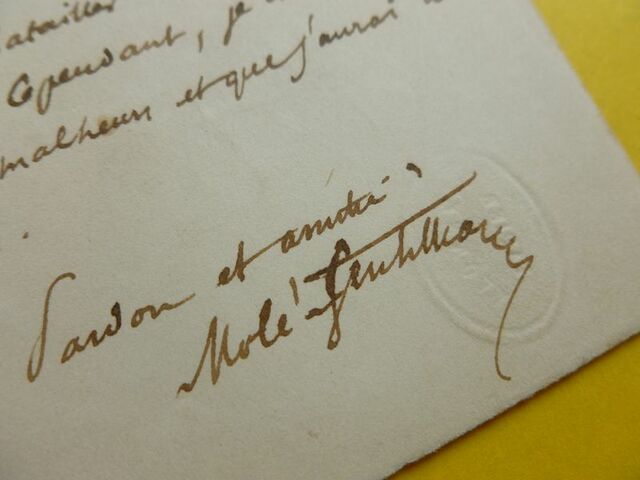 batailler
Cependant, je
malheurs et que j'aurai
Pardon et amitié
Molé Gentilhomme